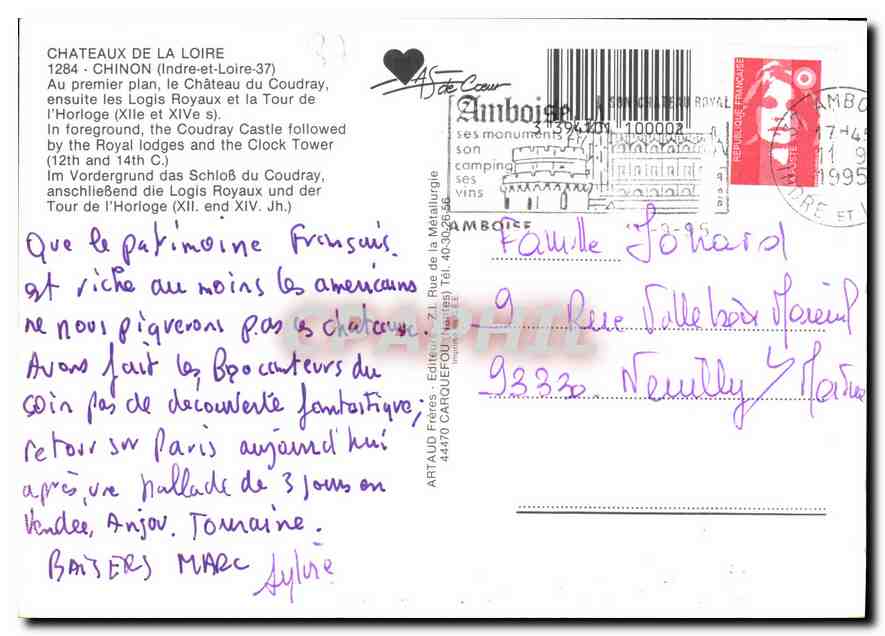 CHATEAUX DE LA LOIRE
1284 - CHINON (Indre-et-Loire-37)
Au premier plan, le Château du Coudray,
ensuite les Logis Royaux et la Tour de
l'Horloge (XIIe et XIVe s).
In foreground, the Coudray Castle followed
by the Royal lodges and the Clock Tower
(12th and 14th C.)
Im Vordergrund das Schloß du Coudray,
anschließend die Logis Royaux und der
Tour de l'Horloge (XII. end XIV. Jh.)
Que le patrimoine Français
est riche au moins les americains
ne nous piquerons pas ces chateaux.
Avons fait les Brocanteurs du
coin pas de decouverte fantastique;
retour sur Paris aujourd'hui
après une ballade de 3 jours en
Vendee, Anjou, Touraine.
BAISERS MARC Sylvie
ARTAUD Frères - Editeurs - Z.I. Rue de la Métallurgie
44470 CARQUEFOU (Nantes) Tél. 40-30-26-56
AS de Cœur
Amboise
SON CHATEAU ROYAL
ses monuments
son
camping
ses
vins
100002
AMBOISE
REPUBLIQUE FRANÇAISE
AMBO
17-45
11 9
1995
INDRE ET L
Famille Jonard
9 Rue
93330 Neuilly / Marne
CPAPHIL